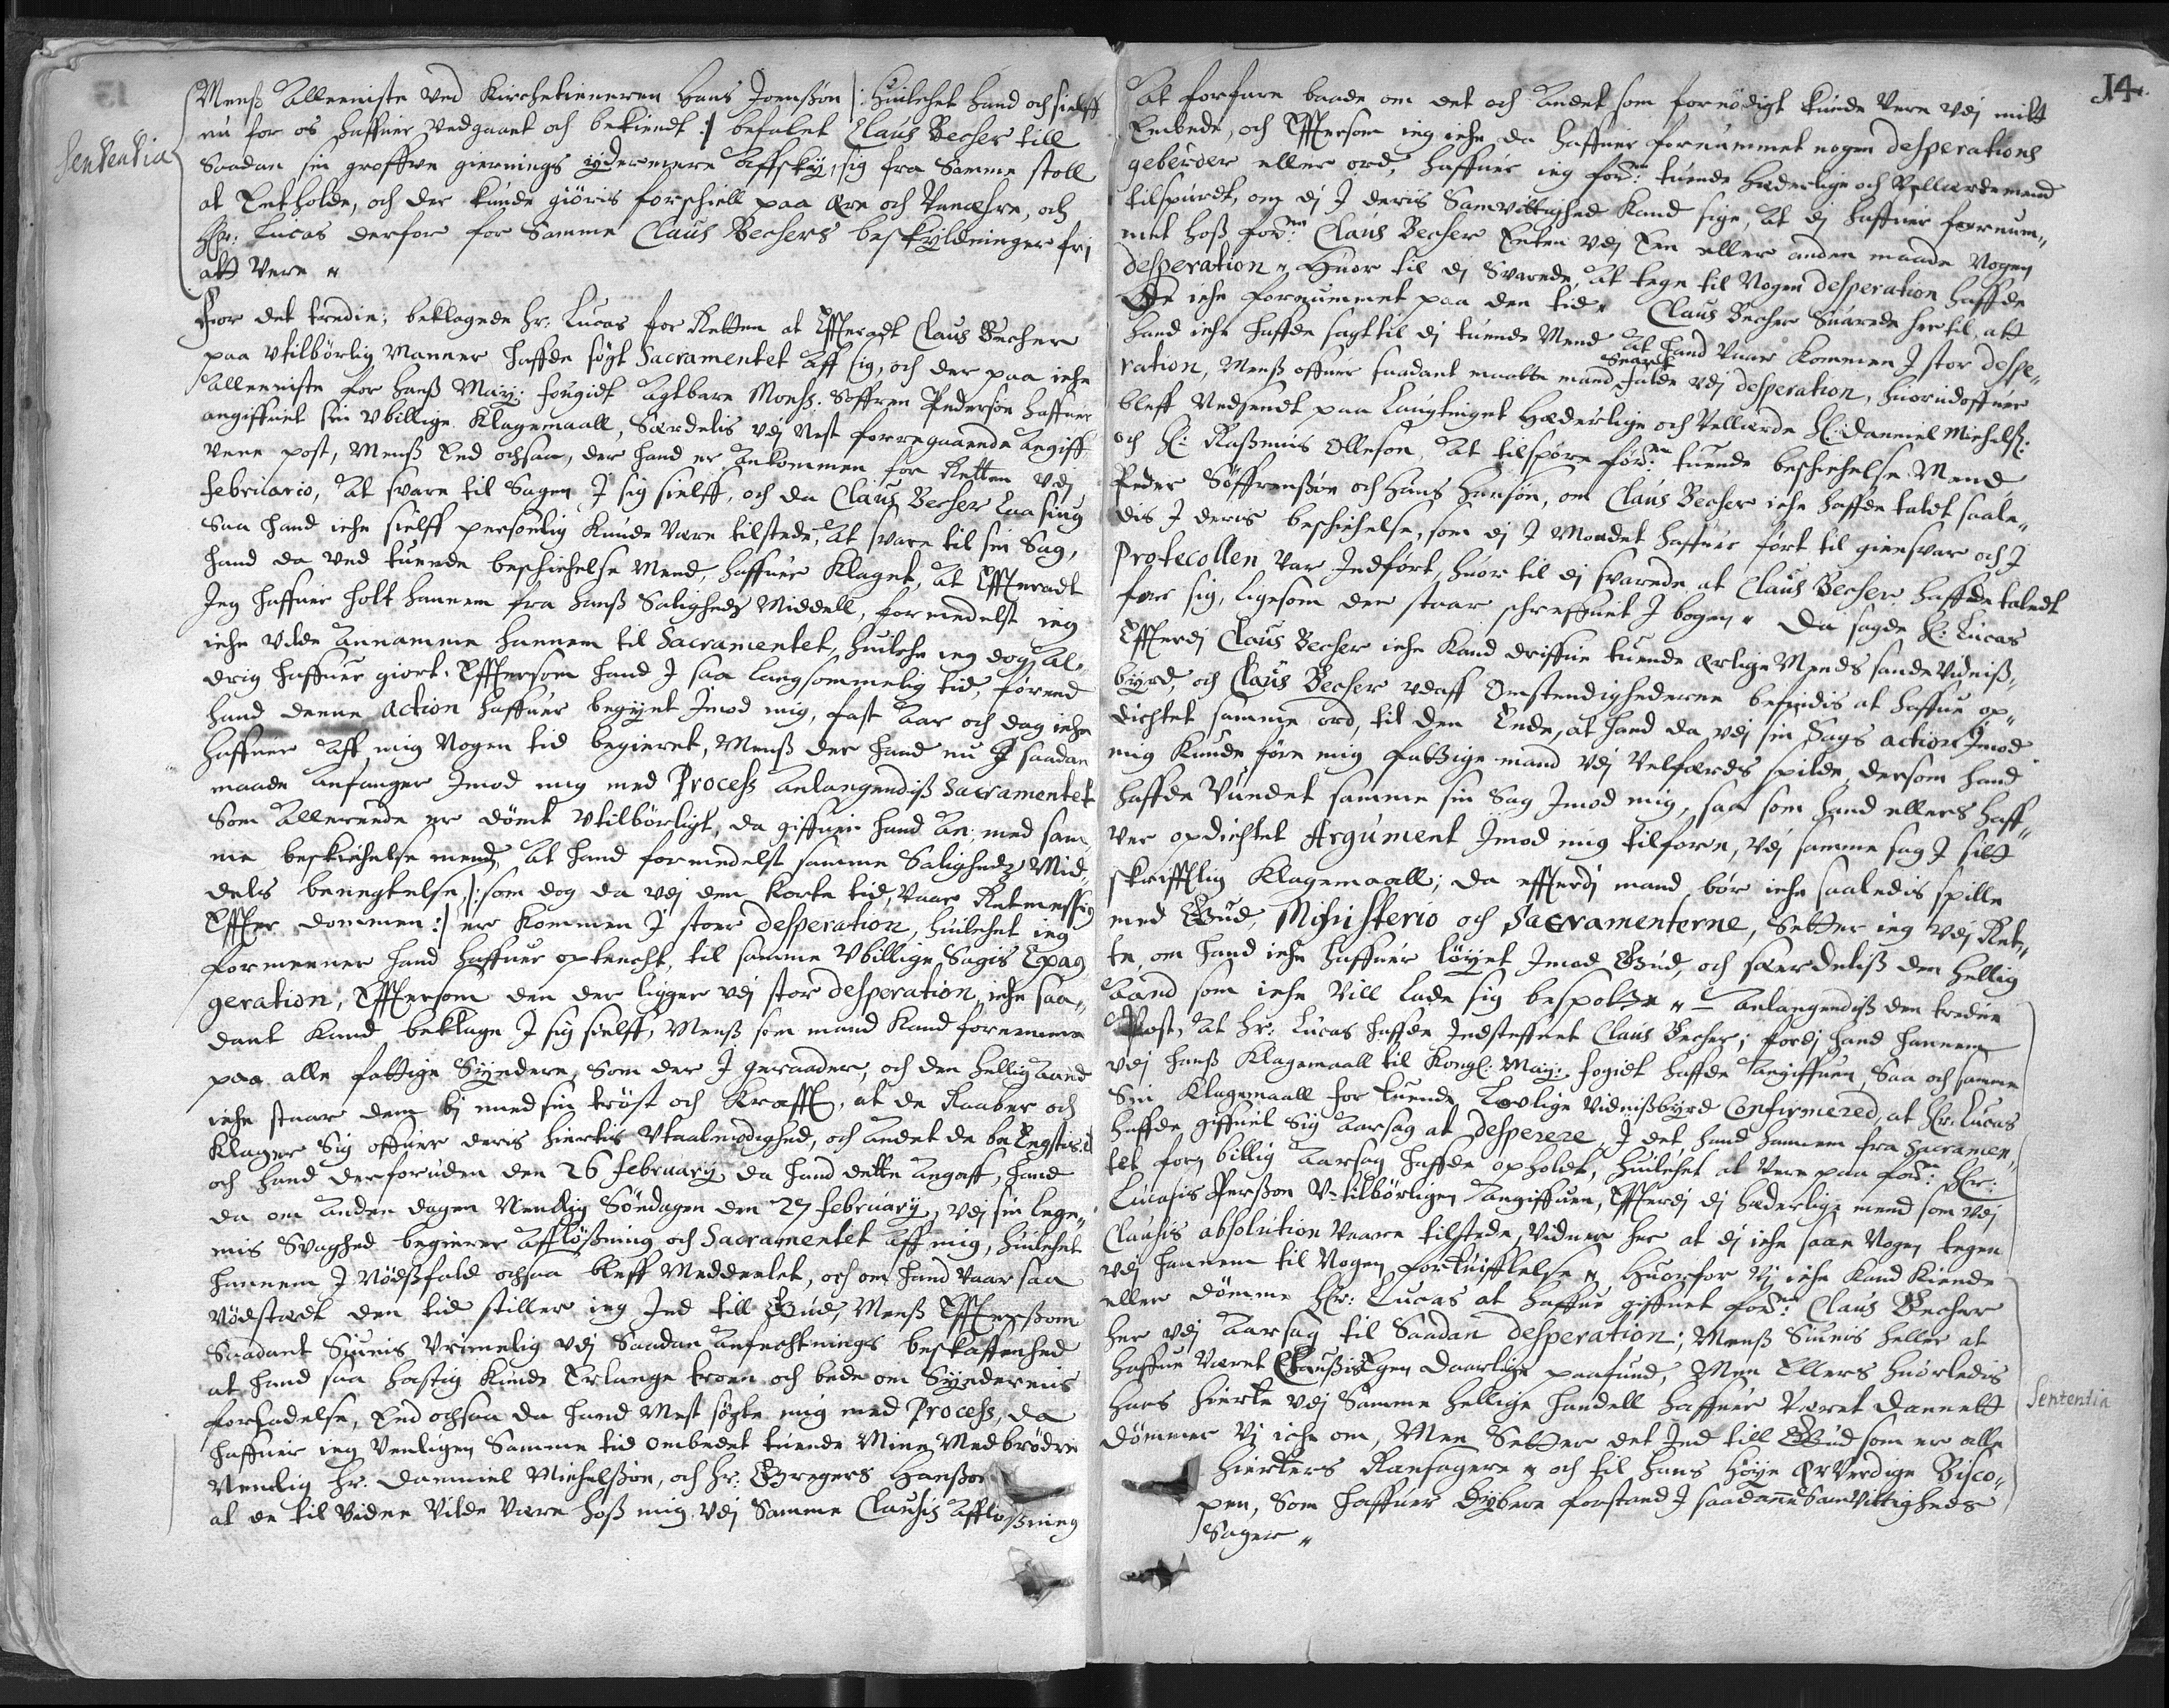 Sententia
Menß alleeniste ved Kirchetieneren Hans Joenßøn |: huilchet hand och sielff
nu for os haffuer vedgaaet och bekiendt :| befalet Claus Becher till
Saadan sin groffue giernings ydermere Affsky, sig fra Samme stoll
at Entholde, och der kunde giøris forschiell paa ære och Vanæhre, och
Hr: Lucas derfor for Samme Claus Bechers beskyldninger fri
att Vere
For det tredie, beklagede Hr: Lucas for Retten at Effteradt Claus Becher
paa Vtilbørlig Manner haffde søgt Sacramentet Aff sig, och der paa iche
alleeniste for Hanß May: fougidt Agtbare Monß: Søffren Pedersøn haffuer
angiffuet sin Vbillige Klagemaall, Særdelis vdj Nest forregaaende Angiff
vene post, Menß End ochsaa, der hand er Ankommen for Retten vdj
Februario, at svare til Sagen J sig sielff, och da Claus Becher Laa siug
Saa hand iche sielff personlig Kunde Være tilstede, At svare til sin Sag,
Hand da ved tuende beschichelse Mend, haffuer Klaget, At Effteradt
Jeg haffuer holt hannem fra hanß Saligheds Middell, formedelst ieg
iche vilde Annamme hannem til Sacramentet, huilche ieg dog Al¬
drig haffuer giort. Efftersom hand J saa langsommelig tid, førend
hand denne Action haffuer begynt Jmod mig, fast Aar och dag iche
haffuer Aff mig Nogen tid begieret, Menß der hand nu J saadan
maade Anfanger Jmod mig med Process anlangendiß Sacramentet
Som Allerrede er dømt Vtilbørligt, da giffuer hand An, med sam
me beskichelse mend, At hand formedelst samme Saligheds Mid¬
dels benegtelse, |: som dog da vdj den korte tid, Vaar Retmessig
Effter dommen :| er Kommen J stoer desperation, huilchet ieg
formeener hand haffuer optencht, til samme Vbillige Sagis Exag
geration, Efftersom den der ligger vdj stor desperation, iche saa¬
dant Kand beklage J sig sielff, Menß som mand Kand fornemme
paa alle fattige Syndere, Som der J geraader, och den hellig Aand
iche staar dem bj med sin trøst och Krafft, at de Raaber och
Klager Sig offuer deris hiertis Vtaalmodighed, och Andet de be Engstis ved
och hand derforuden den 26 February da hand dette Angaff, hand
da om anden dagen Nemblig Søndagen den 27 February, vdj sin lege¬
mis Svaghed begierer Affløßning och Sacramentet Aff mig, huilchet
hannem J Nødßfald ochsaa bleff Meddeelet, och om hand Vaar saa
Nødstædt den tid stiller ieg Ind till Gud, Menß Effterßom
Saadant Siunis Vrimelig vdj Saadan Anfechtnings beskaffenhed
at hand saa hastig kunde Erlange troen och bede om Syndernis
forladelse, End ochsaa da hand Mest søgte mig med Process, da
haffuer ieg Venligen Samme tid ombedet tuende Mine Medbrødre
Nemlig Hr: Danniel Michelßøn, och Hr: Gregers Hanßøn
at de til vidne Vilde Være hoß mig vdj Samme Clausis Affløßning
14.
At forfare baade om det och Andet som fornødigt kunde Vere vdj mitt
Embede, och Efftersom ieg iche da haffuer fornummet nogen desperations
geberder eller ord, haffuer ieg ford:ne tuende Hæderlige och Vellærde mend
tilspurdt, om dj J deris Samvittighed Kand sige, At dj haffuer fornum¬
met hoß ford:ne Claus Becher Enten vdj Een eller anden maade Nogen
desperation. Huor til dj Svarede, At tegn til Nogen desperation haffde
De iche fornummet paa den tid. Claus Becher Suarede her til, att
hand iche haffde sagt til dj tuende Mend At hand Vaar Kommen J stor despe¬
ration, Menß offuer saadant maatte mand snart falde vdj desperation, huorudoffuer
bleff Nedsendt paa Laugtinget Hæderlige och Vellærde Hr: Danniel Michelß:
och Hr: Raßmus Olleson, At tilspøre ford:ne tuende beschichelse Mend,
Peder Søffrenßøn och Hans Hansøn, om Claus Becher iche haffde taldt saale¬
dis J deris beschichelse, som dj J Mondet haffuer ført til giensvar och J
Protecollen var Indført, huor til dj svarede at Claus Becher haffde taledt
for sig, ligesom der staar schreffuet J bogen. Da sagde Hr: Lucas
Efftterdj Claus Becher iche Kand driffue tuende ærlige Mends sande Vidniß¬
byrd, och Claus Becher vdaff Omstendighederne befindis at haffue op¬
dichtet samme ord, til den Ende, at hand da vdj sin Sags action Jmod
mig Kunde føre mig fattige mand vdj Velfærds spilde, dersom hand
haffde Vundet samme sin Sag Jmod mig, saa som hand ellers haff¬
ver opdichtet Argument Jmod mig tilforn, vdj samme sag J sitt
skrifftlig Klagemaall; da effterdj mand bør iche saaledis spille
med Gud, Ministerio och Sacramenterne, Setter ieg vdj Ret¬
te, om hand iche haffuer løyet Jmod Gud, och særdeliß den hellig
Aand som iche Vill lade sig bespotte. Anlangendiß den tredie
Post, At Hr: Lucas haffde Indsteffnet Claus Becher; fordj hand hannem
vdj hanß Klagemaall til Kongl: May: fogidt haffde Angiffuen, Saa och samme
Sin Klagemaall for tuende Lovlige Vidnißbyrd Confirmered, at Hr: Lucas
haffde giffuet Sig Aarsag at desperere, J det, hand hannem fra Sacramen¬
tet for billig Aarsag haffde opholdt, huilchet at Vere paa ford:ne Hr:
Lucasis Perßon V-tilbørligen Angiffuen, Effterdj dj hæderlige mend som vdj
Clausis absolution Vaare tilstede, Vidner her at dj iche saae Nogen tegen
vdj hannem til Nogen fortuifflelse. Huorfor Vj iche Kand Kiende
eller dømme Hr: Lucas at haffue giffuet ford:ne Claus Becher
her vdj Aarsag til Saadan desperation; Menß Siunis heller at
haffue Været Claußis Egen daarlige paafund, Men Ellers huorledis
hans hierte vdj Samme hellige handell haffuer Været dannett
dømmer Vj iche om, Men Setter det Ind till Gud som er alle
Hierters Ransagere och til hans Høye ærverdige Bisco¬
pen, Som haffuer dybere forstand J saadanne Samvittigheds
Sager
Sententia